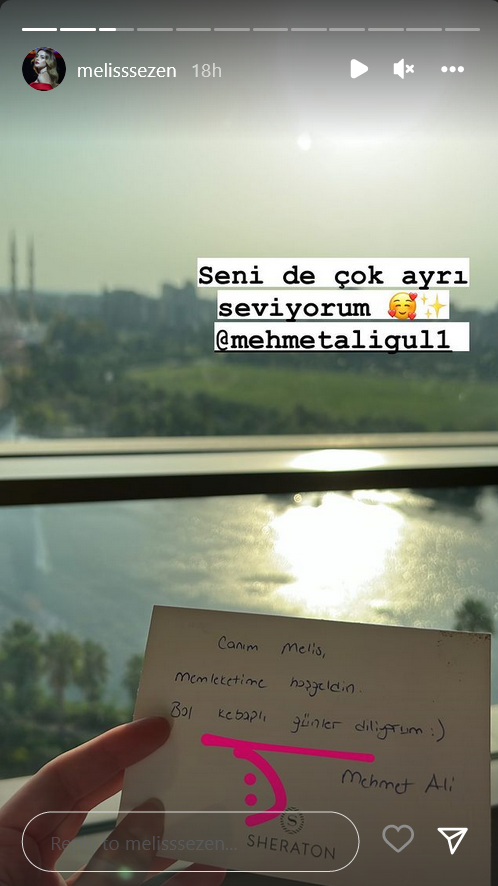 melisssezen 18h
Seni de çok ayrı
seviyorum 🥰✨
@mehmetaligul1
Canım Melis,
Memleketime hoşgeldin.
Bol kebaplı günler diliyorum :)
Mehmet Ali
S
SHERATON
Reply to melisssezen...